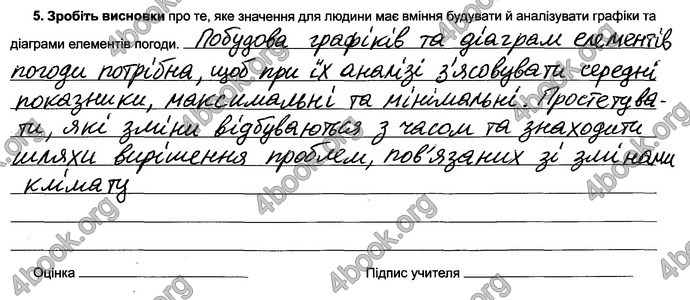 5. Зробіть висновки про те, яке значення для людини має вміння будувати й аналізувати графіки та
діаграми елементів погоди. Побудова графіків та діаграм елементів
погоди потрібна, щоб при їх аналізі з'ясовувати середні
показники, максимальні та мінімальні. Простетува-
ти, які зміни відбуваються з часом та знаходити
шляхи вирішення проблем, пов'язаних зі змінами
клімату
Оцінка
Підпис учителя
4book.org
4book.org
4book.org
4book.org
4book.org
4book.org
4book.org